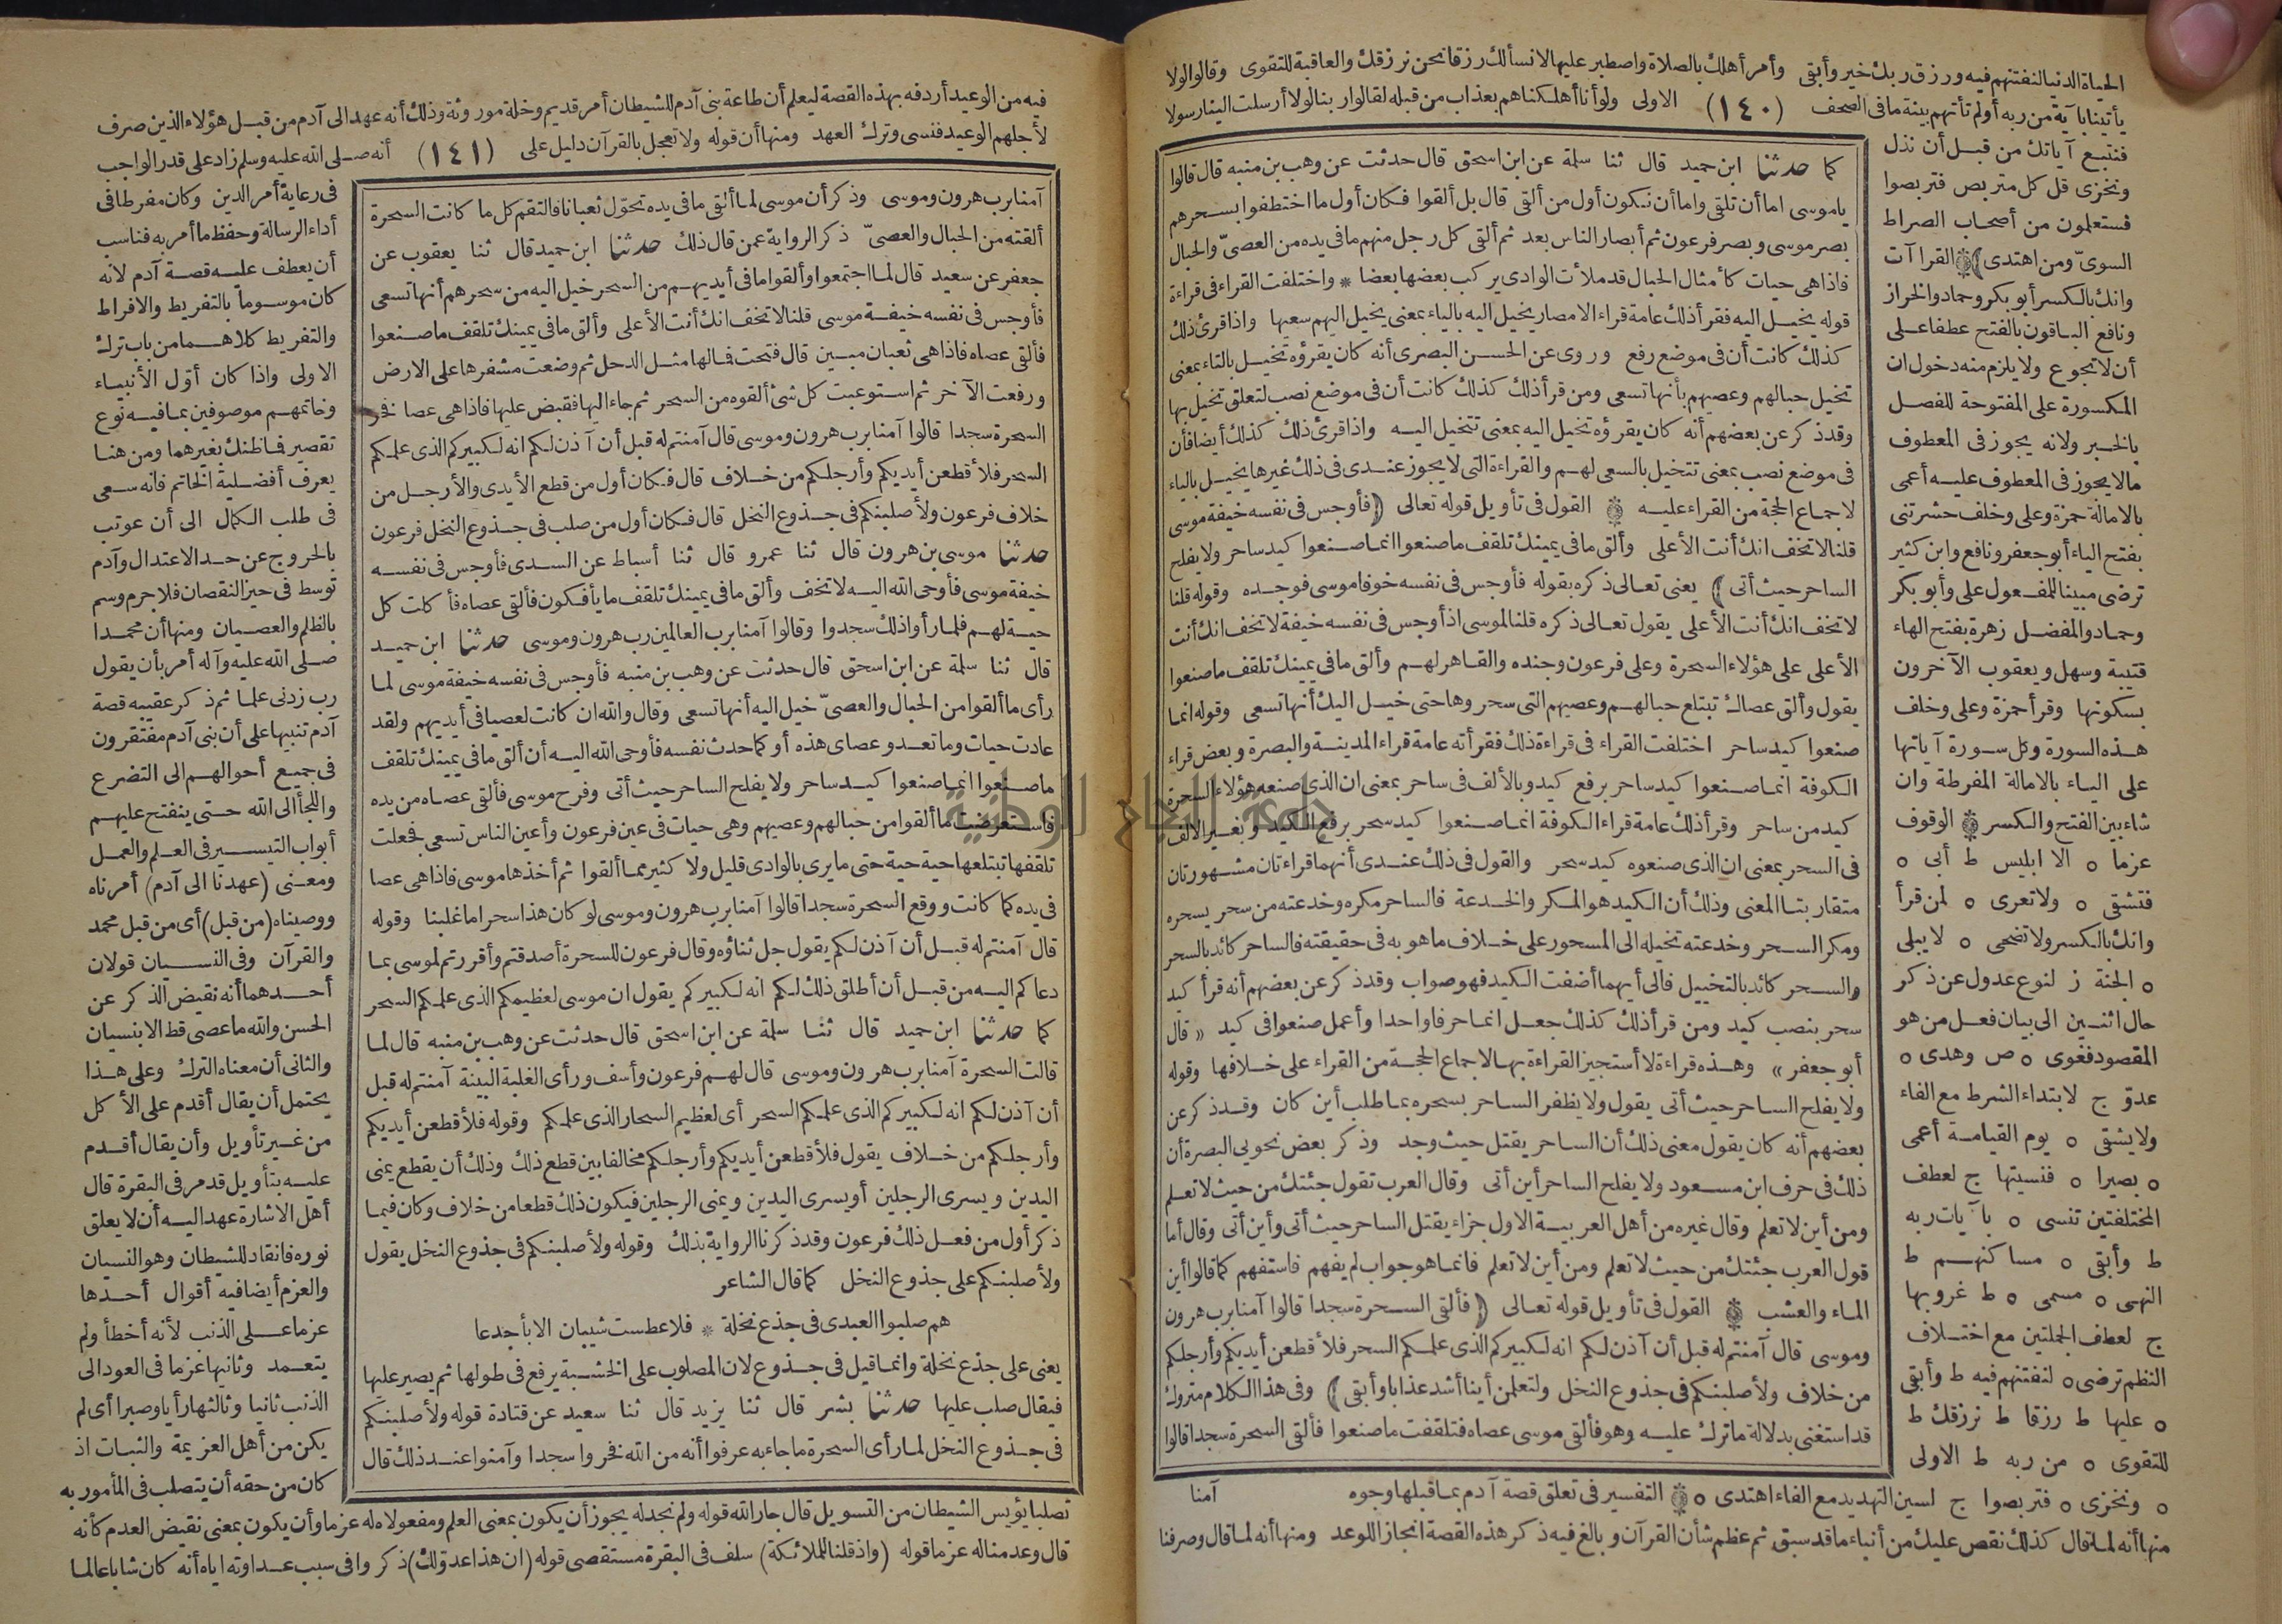 الحياة الدنيا لنفتنهم فيه ورزق ربك خير وأبقى وأمر أهلك بالصلاة واصطبر عليها لا نسألك رزقا نحن نرزقك والعاقبة للتقوى وقالوا لولا
يأتينا بآية من ربه أولم تأتهم بينة ما فى الصحف (١٤٠) الاولى ولو أنا أهلكناهم بعذاب من قبله لقالوا ربنا لولا أرسلت الينا رسولا
فنتبع آياتك من قبل أن نذل
ونخزى قل كل متربص فتربصوا
فستعلمون من أصحاب الصراط
السوىّ ومن اهتدى) القراآت
وانك بالكسر أبو بكر وحماد والخراز
ونافع الباقون بالفتح عطفا على
أن لا تجوع ولا يلزم منه دخول ان
المكسورة على المفتوحة للفصل
بالخبر ولانه يجوز فى المعطوف
مالا يجوز فى المعطوف عليه أعمى
بالامالة حمزة وعلى وخلف حشرتنى
بفتح الياء أبو جعفر ونافع وابن كثير
ترضى مبينا للمفعول على وأبو بكر
وحماد والمفضل زهرة بفتح الهاء
قتيبة وسهل ويعقوب الآخرون
بسكونها وقرأ حمزة وعلى وخلف
هذه السورة وكل سورة آياتها
على الياء بالامالة المفرطة وان
شاء بين الفتح والكسر الوقوف
عزما ه الا ابليس ط أبى ه
فتشقى ه ولا تعرى ه لمن قرأ
وانك بالكسر ولا تضحى ه لا يبلى
ه الجنة ز لنوع عدول عن ذكر
حال اثنين الى بيان فعل من هو
المقصود فغوى ه ص وهدى ه
عدوّ ج لابتداء الشرط مع الفاء
ولا يشقى ه يوم القيامة أعمى
ه بصيرا ه فنسيتها ج لعطف
المختلفتين تنسى ه بآيات ربه
ط وأبقى ه مساكنهم ط
النهى ه مسمى ه ط غروبها
ج لعطف الجملتين مع اختلاف
النظم ترضى ه لنفتنهم فيه ط وأبقى
ه عليها ط رزقا ط نرزقك ط
للتقوى ه من ربه ط الاولى
كما حدثنا ابن حميد قال ثنا سلمة عن ابن اسحق قال حدثت عن وهب بن منبه قال قالوا
يا موسى اما أن تلقى واما أن نكون أول من ألقى قال بل ألقوا فكان أول ما اختطفوا بسحرهم
بصر موسى وبصر فرعون ثم أبصار الناس بعد ثم ألقى كل رجل منهم ما فى يده من العصىّ والحبال
فاذا هى حيات كأمثال الحبال قد ملأت الوادى يركب بعضها بعضا * واختلفت القراء فى قراءة
قوله يخيل اليه فقرأ ذلك عامة قراء الامصار يخيل اليه بالياء بمعنى يخيل اليهم سعيها واذا قرئ ذلك
كذلك كانت أن فى موضع رفع وروى عن الحسن البصرى أنه كان يقرؤه تخيل بالتاء بمعنى
تخيل حبالهم وعصيهم بأنها تسعى ومن قرأ ذلك كذلك كانت أن فى موضع نصب لتعلق تخيل بها
وقد ذكر عن بعضهم أنه كان يقرؤه تخيل اليه بمعنى تتخيل اليه واذا قرئ ذلك كذلك أيضا فأن
فى موضع نصب بمعنى تتخيل بالسعى لهم والقراءة التى لا يجوز عندى فى ذلك غيرها يخيل بالياء
لاجماع الحجة من القراء عليه القول فى تأويل قوله تعالى (فأوجس فى نفسه خيفة موسى
قلنا لا تخف انك أنت الأعلى وألق ما فى يمينك تلقف ما صنعوا انما صنعوا كيد ساحر ولا يفلح
الساحر حيث أتى) يعنى تعالى ذكره بقوله فأوجس فى نفسه خوفا موسى فوجده وقوله قلنا
لا تخف انك أنت الأعلى يقول تعالى ذكره قلنا لموسى اذ أوجس فى نفسه خيفة لا تخف انك أنت
الأعلى على هؤلاء السحرة وعلى فرعون وجنده والقاهر لهم وألق ما فى يمينك تلقف ما صنعوا
يقول وألق عصاك تبتلع حبالهم وعصيهم التى سحروها حتى خيل اليك أنها تسعى وقوله انما
صنعوا كيد ساحر اختلفت القراء فى قراءة ذلك فقرأته عامة قراء المدينة والبصرة وبعض قراء
الكوفة انما صنعوا كيد ساحر برفع كيد وبالألف فى ساحر بمعنى ان الذى صنعه هؤلاء السحرة
كيد من ساحر وقرأ ذلك عامة قراء الكوفة انما صنعوا كيد سحر برفع الكيد وبغير الالف
فى السحر بمعنى ان الذى صنعوه كيد سحر والقول فى ذلك عندى أنهما قراءتان مشهورتان
متقاربتا المعنى وذلك أن الكيد هو المكر والخدعة فالساحر مكره وخدعته من سحر يسحره
ومكر السحر وخدعته تخيله الى المسحور على خلاف ما هو به فى حقيقته فالساحر كائد بالسحر
والسحر كائد بالتخييل فالى أيهما أضفت الكيد فهو صواب وقد ذكر عن بعضهم أنه قرأ كيد
سحر بنصب كيد ومن قرأ ذلك كذلك جعل انما حرفا واحدا وأعمل صنعوا فى كيد «قال
أبو جعفر» وهذه قراءة لا أستجيز القراءة بها لاجماع الحجة من القراء على خلافها وقوله
ولا يفلح الساحر حيث أتى يقول ولا يظفر الساحر بسحره بما طلب أين كان وقد ذكر عن
بعضهم أنه كان يقول معنى ذلك أن الساحر يقتل حيث وجد وذكر بعض نحويى البصرة أن
ذلك فى حرف ابن مسعود ولا يفلح الساحر أين أتى وقال العرب تقول جئتك من حيث لا تعلم
ومن أين لا تعلم وقال غيره من أهل العربية الاول جزاء يقتل الساحر حيث أتى وأين أتى وقال أما
قول العرب جئتك من حيث لا تعلم ومن أين لا تعلم فانما هو جواب لم يفهم فاستفهم كما قالوا أين
الماء والعشب القول فى تأويل قوله تعالى (فألقى السحرة سجدا قالوا آمنا برب هرون
وموسى قال آمنتم له قبل أن آذن لكم انه لكبيركم الذى علمكم السحر فلأقطعن أيديكم وأرجلكم
من خلاف ولأصلبنكم فى جذوع النخل ولتعلمن أينا أشد عذابا وأبقى) وفى هذا الكلام متروك
قد استغنى بدلالة ما ترك عليه وهو فألقى موسى عصاه فتلقفت ما صنعوا فألقى السحرة سجدا قالوا
ه ونخزى ه فتربصوا ج لسين التهديد مع الفاء اهتدى ه التفسير فى تعلق قصة آدم بما قبلها وجوه آمنا
منها أنه لما قال كذلك نقص عليك من أنباء ما قد سبق ثم عظم شأن القرآن وبالغ فيه ذكر هذه القصة انجازا للوعد ومنها أنه لما قال وصرفنا
فيه من الوعيد أردفه بهذه القصة ليعلم أن طاعة بنى آدم للشيطان أمر قديم وخلة موروثة وذلك أنه عهد الى آدم من قبل هؤلاء الذين صرف
لأجلهم الوعيد فنسى وترك العهد ومنها أن قوله ولا تعجل بالقرآن دليل على (١٤١) أنه صلى الله عليه وسلم زاد على قدر الواجب
آمنا برب هرون وموسى وذكر أن موسى لما ألقى ما فى يده تحوّل ثعبانا فالتقم كل ما كانت السحرة
ألقته من الحبال والعصىّ ذكر الرواية عمن قال ذلك حدثنا ابن حميد قال ثنا يعقوب عن
جعفر عن سعيد قال لما اجتمعوا وألقوا ما فى أيديهم من السحر خيل اليه من سحرهم أنها تسعى
فأوجس فى نفسه خيفة موسى قلنا لا تخف انك أنت الأعلى وألق ما فى يمينك تلقف ما صنعوا
فألقى عصاه فاذا هى ثعبان مبين قال فتحت فما لها مثل الدحل ثم وضعت مشفرها على الارض
ورفعت الآخر ثم استوعبت كل شئ ألقوه من السحر ثم جاء اليها فقبض عليها فاذا هى عصا فخر
السحرة سجدا قالوا آمنا برب هرون وموسى قال آمنتم له قبل أن آذن لكم انه لكبيركم الذى علمكم
السحر فلأقطعن أيديكم وأرجلكم من خلاف قال فكان أول من قطع الأيدى والأرجل من
خلاف فرعون ولأصلبنكم فى جذوع النخل قال فكان أول من صلب فى جذوع النخل فرعون
حدثنا موسى بن هرون قال ثنا عمرو قال ثنا أسباط عن السدى فأوجس فى نفسه
خيفة موسى فأوحى الله اليه لا تخف وألق ما فى يمينك تلقف ما يأفكون فألقى عصاه فأكلت كل
حية لهم فلما رأوا ذلك سجدوا وقالوا آمنا برب العالمين رب هرون وموسى حدثنا ابن حميد
قال ثنا سلمة عن ابن اسحق قال حدثت عن وهب بن منبه فأوجس فى نفسه خيفة موسى لما
رأى ما ألقوا من الحبال والعصىّ خيل اليه أنها تسعى وقال والله ان كانت لعصيا فى أيديهم ولقد
عادت حيات وما تعدو عصاى هذه أو كما حدث نفسه فأوحى الله اليه أن ألق ما فى يمينك تلقف
ما صنعوا انما صنعوا كيد ساحر ولا يفلح الساحر حيث أتى وفرح موسى فألقى عصاه من يده
فاستعرضت ما ألقوا من حبالهم وعصيهم وهى حيات فى عين فرعون وأعين الناس تسعى فجعلت
تلقفها تبتلعها حية حية حتى ما يرى بالوادى قليل ولا كثير مما ألقوا ثم أخذها موسى فاذا هى عصا
فى يده كما كانت ووقع السحرة سجدا قالوا آمنا برب هرون وموسى لو كان هذا سحرا ما غلبنا وقوله
قال آمنتم له قبل أن آذن لكم يقول جل ثناؤه وقال فرعون للسحرة أصدقتم وأقررتم لموسى بما
دعاكم اليه من قبل أن أطلق ذلك لكم انه لكبيركم يقول ان موسى لعظيمكم الذى علمكم السحر
كما حدثنا ابن حميد قال ثنا سلمة عن ابن اسحق قال حدثت عن وهب بن منبه قال لما
قالت السحرة آمنا برب هرون وموسى قال لهم فرعون وأسف ورأى الغلبة البينة آمنتم له قبل
أن آذن لكم انه لكبيركم الذى علمكم السحر أى لعظيم السحار الذى علمكم وقوله فلأقطعن أيديكم
وأرجلكم من خلاف يقول فلأقطعن أيديكم وأرجلكم مخالفا بين قطع ذلك وذلك أن يقطع يمنى
اليدين ويسرى الرجلين أو يسرى اليدين ويمنى الرجلين فيكون ذلك قطعا من خلاف وكان فيما
ذكر أول من فعل ذلك فرعون وقد ذكرنا الرواية بذلك وقوله ولأصلبنكم فى جذوع النخل يقول
ولأصلبنكم على جذوع النخل كما قال الشاعر
هم صلبوا العبدى فى جذع نخلة * فلا عطست شيبان الا بأجدعا
يعنى على جذع نخلة وانما قيل فى جذوع لان المصلوب على الخشبة يرفع فى طولها ثم يصير عليها
فيقال صلب عليها حدثنا بشر قال ثنا يزيد قال ثنا سعيد عن قتادة قوله ولأصلبنكم
فى جذوع النخل لما رأى السحرة ما جاء به عرفوا أنه من الله فخروا سجدا وآمنوا عند ذلك قال
فى رعاية أمر الدين وكان مفرطا فى
أداء الرسالة وحفظ ما أمر به فناسب
أن يعطف عليه قصة آدم لانه
كان موسوما بالتفريط والافراط
والتفريط كلاهما من باب ترك
الاولى واذا كان أوّل الأنبياء
وخاتمهم موصوفين بما فيه نوع
تقصير فما ظنك بغيرهما ومن هنا
يعرف أفضلية الخاتم فانه سعى
فى طلب الكمال الى أن عوتب
بالخروج عن حد الاعتدال وآدم
توسط فى حيز النقصان فلا جرم وسم
بالظلم والعصيان ومنها أن محمدا
صلى الله عليه وآله أمر بأن يقول
رب زدنى علما ثم ذكر عقيبه قصة
آدم تنبيها على أن بنى آدم مفتقرون
فى جميع أحوالهم الى التضرع
واللجأ الى الله حتى ينفتح عليهم
أبواب التيسير فى العلم والعمل
ومعنى (عهدنا الى آدم) أمرناه
ووصيناه (من قبل) أى من قبل محمد
والقرآن وفى النسيان قولان
أحدهما أنه نقيض الذكر عن
الحسن والله ما عصى قط الا بنسيان
والثانى أن معناه الترك وعلى هذا
يحتمل أن يقال أقدم على الأكل
من غير تأويل وأن يقال أقدم
عليه بتأويل قد مر فى البقرة قال
أهل الاشارة عهد اليه أن لا يعلق
نوره فانقاد للشيطان وهو النسيان
والعزم أيضا فيه أقوال أحدها
عزما على الذنب لأنه أخطأ ولم
يتعمد وثانيها عزما فى العود الى
الذنب ثانيا وثالثها رأيا وصبرا أى لم
يكن من أهل العزيمة والثبات اذ
كان من حقه أن يتصلب فى المأمور به
تصلبا يؤيس الشيطان من التسويل قال جار الله قوله ولم نجد له يجوز أن يكون بمعنى العلم ومفعولاه له عزما وأن يكون بمعنى نقيض العدم كأنه
قال وعدمنا له عزما قوله (واذ قلنا للملائكة) سلف فى البقرة مستقصى قوله (ان هذا عدوّ لك) ذكروا فى سبب عداوته اياه أنه كان شابا عالما
جامعة النجاح الوطنية